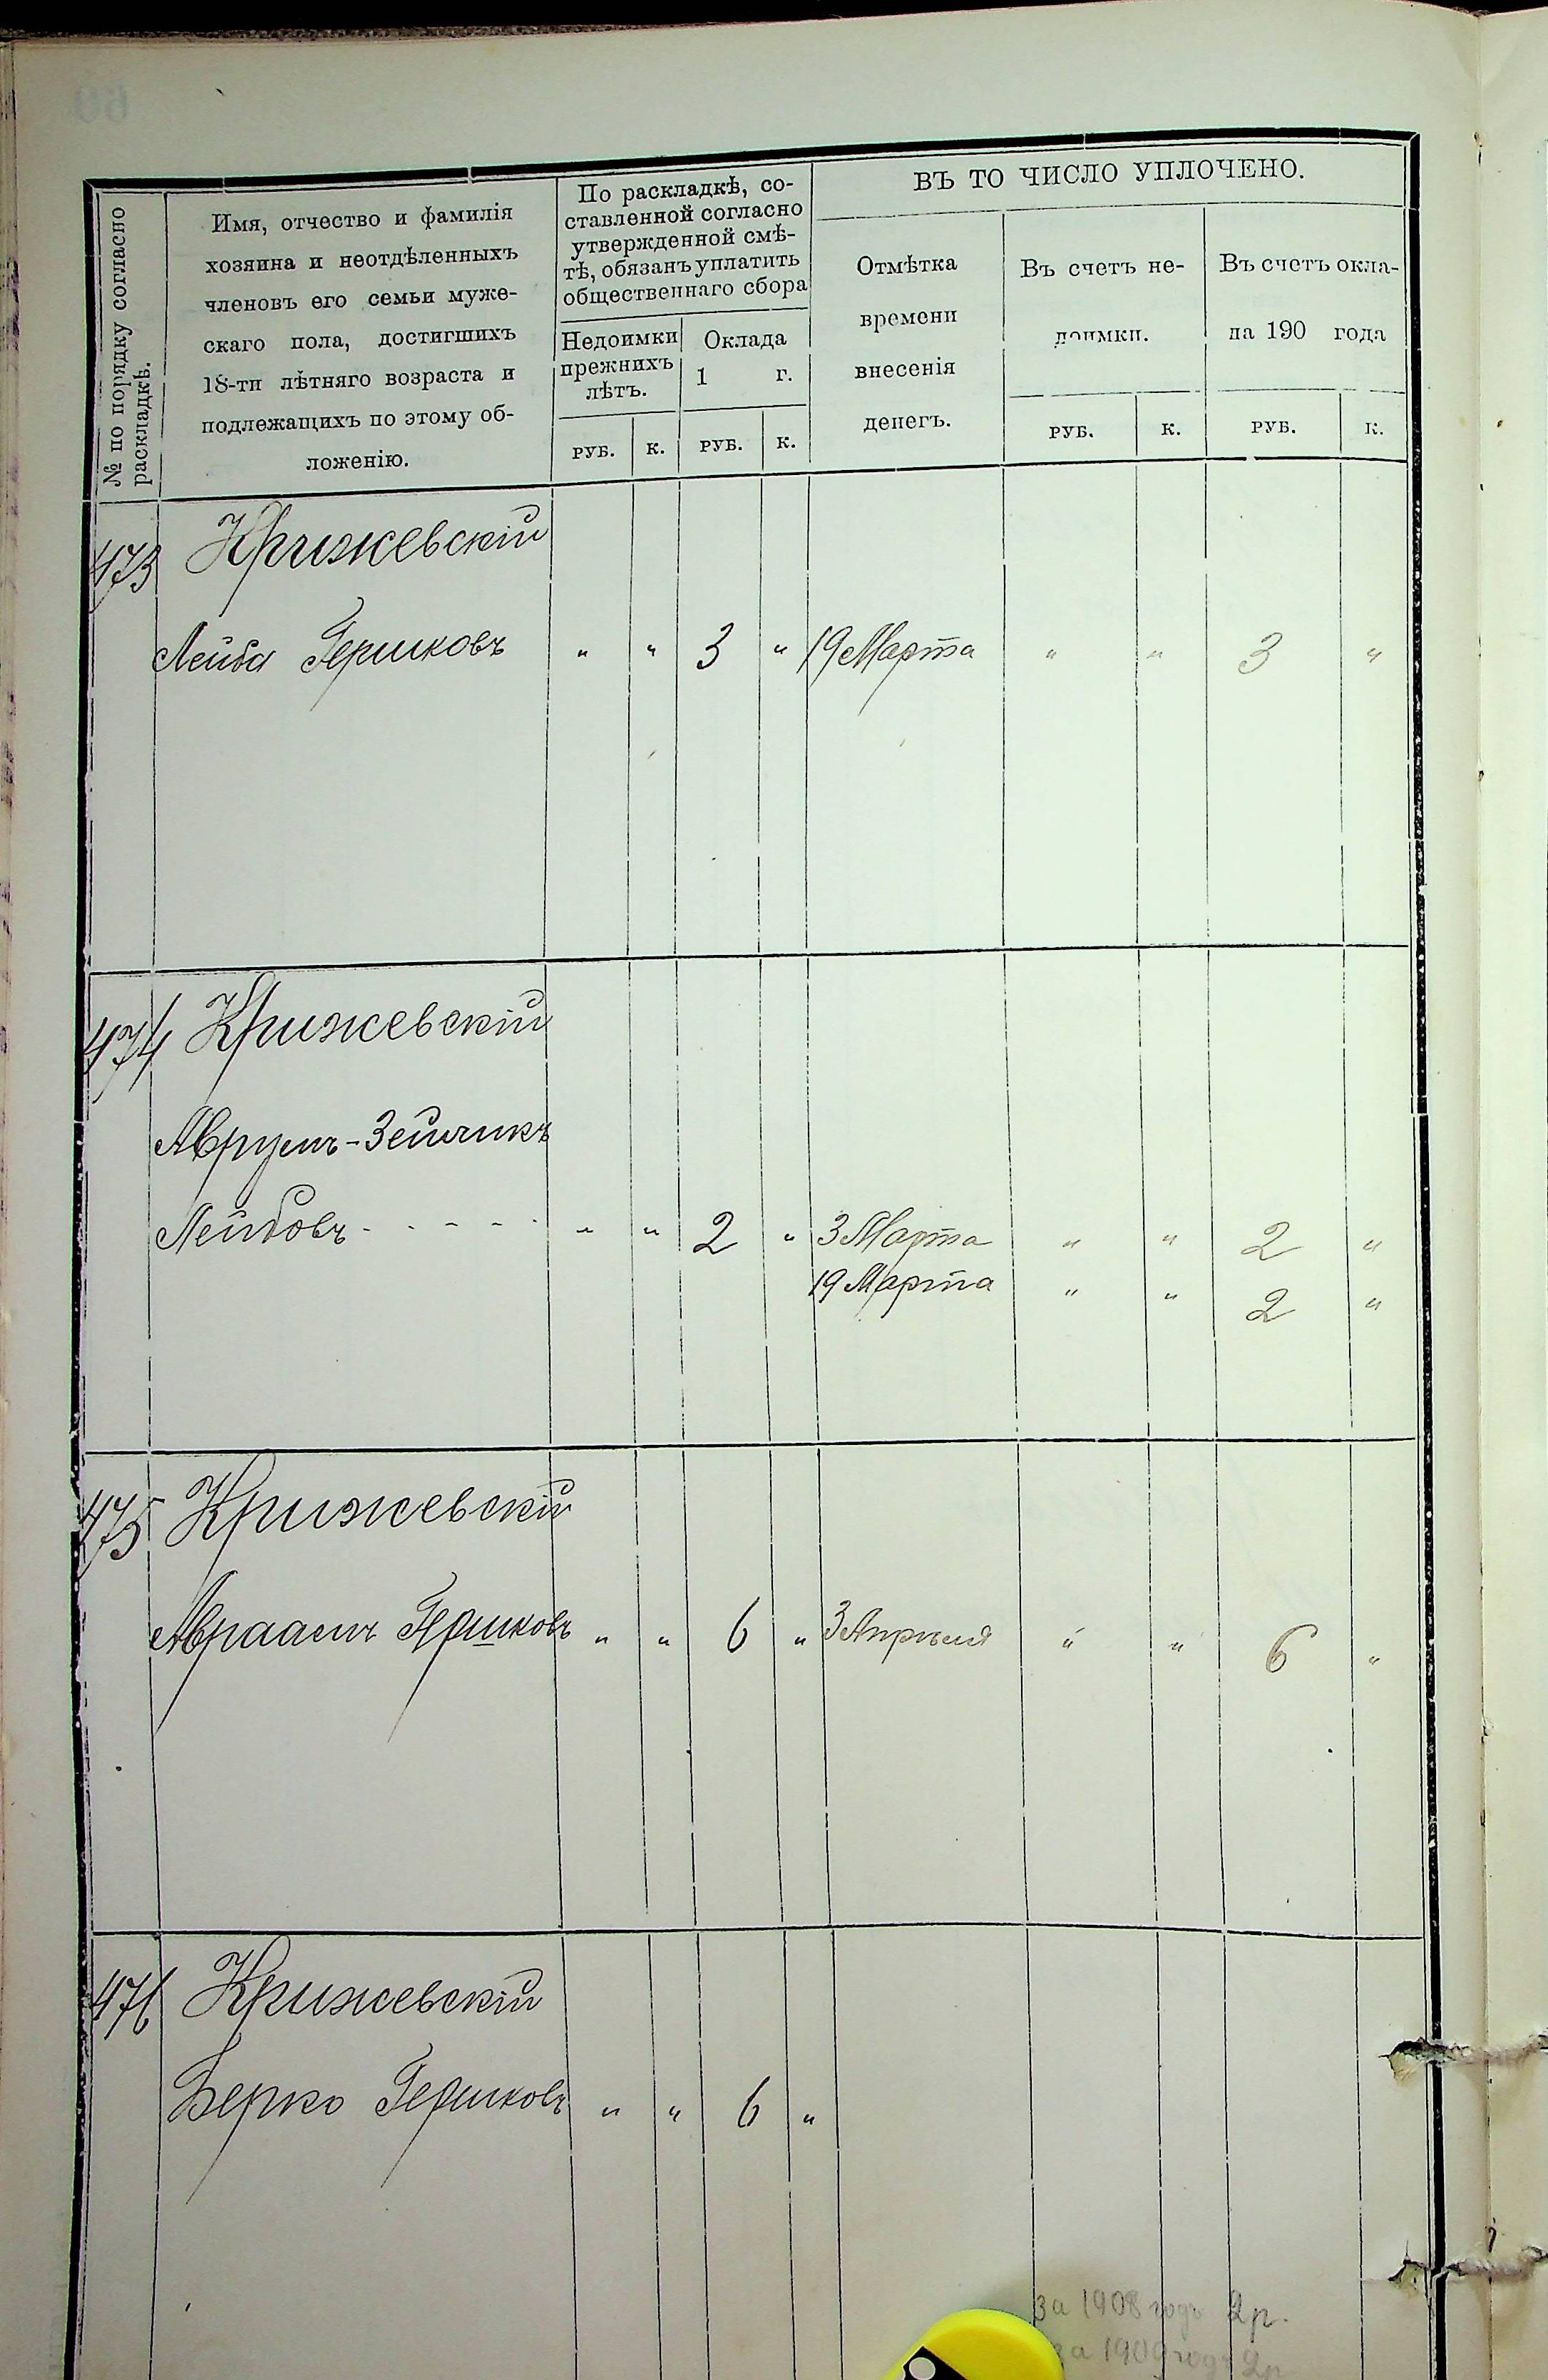 № по порядку согласно
раскладкѣ.
Имя, отчество и фамилія
хозяина и неотдѣленныхъ
членовъ его семьи муже-
скаго пола, достигшихъ
18-ти лѣтняго возраста и
подлежащихъ по этому об-
ложенію.
По раскладкѣ, со-
ставленной согласно
утвержденной смѣ-
тѣ, обязанъ уплатить
общественнаго сбора
Недоимки
прежнихъ
лѣтъ.
Оклада
1 г.
РУБ. К. РУБ. К.
ВЪ ТО ЧИСЛО УПЛОЧЕНО.
Отмѣтка
времени
внесенія
денегъ.
Въ счетъ не-
доимки.
Въ счетъ окла-
да 190 года
РУБ. К. РУБ. К.
473 Крижевскій
Лейба Гершковъ " " 3 " 19 Марта " " 3 "
474 Крижевскій
Аврумъ-Зейчикъ
Лейбовъ - - - - - - " " 2 " 3 Марта " " 2 "
19 Марта " " 2 "
475 Крижевскій
Авраамъ Гершковъ " " 6 " 3 Апрѣля " " 6 "
476 Крижевскій
Берко Гершковъ " " 6 "
за 1908 годъ 2 р.
за 1909 годъ 2р